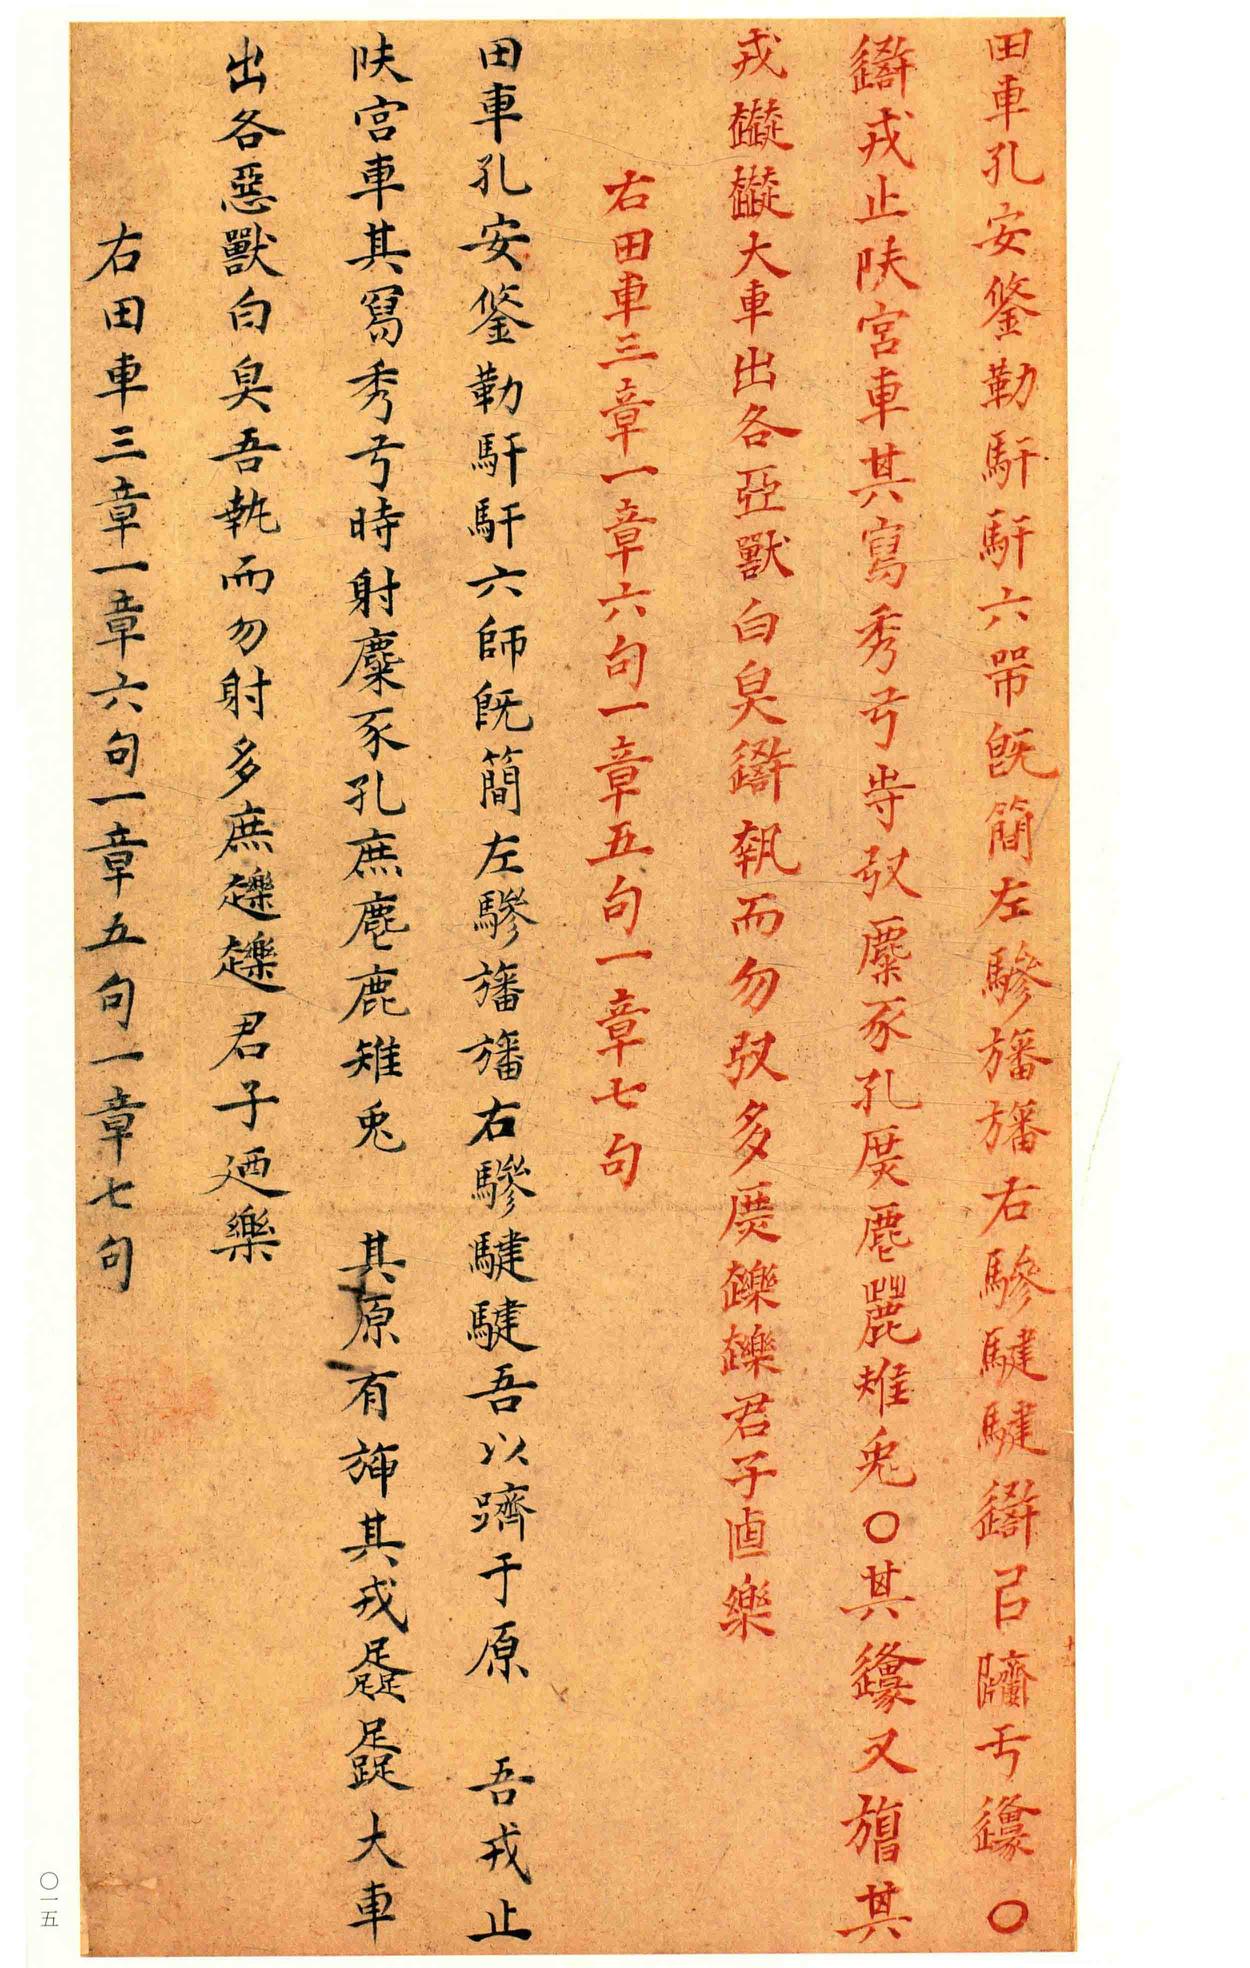 田車孔安鋚勒馯馯六帀既簡左驂旛旛右驂騝騝㠯隮亐邍〇
戎止陕宮車其寫秀弓寺麋豕孔雉兔〇其邍又其
戎大車出各亞獸白臭執而勿多君子卣樂
右田車三章一章六句一章五句一章七句
田車孔安鋚勒馯馯六師既簡左驂旛旛右驂騝騝吾以躋于原 吾戎止
陕宮車其寫秀弓時射麋豕孔庶麀鹿雉兔 其原有旆其戎大車
出各惡獸白臭吾執而勿射多庶趮趮君子迺樂
右田車三章一章六句一章五句一章七句
〇一五